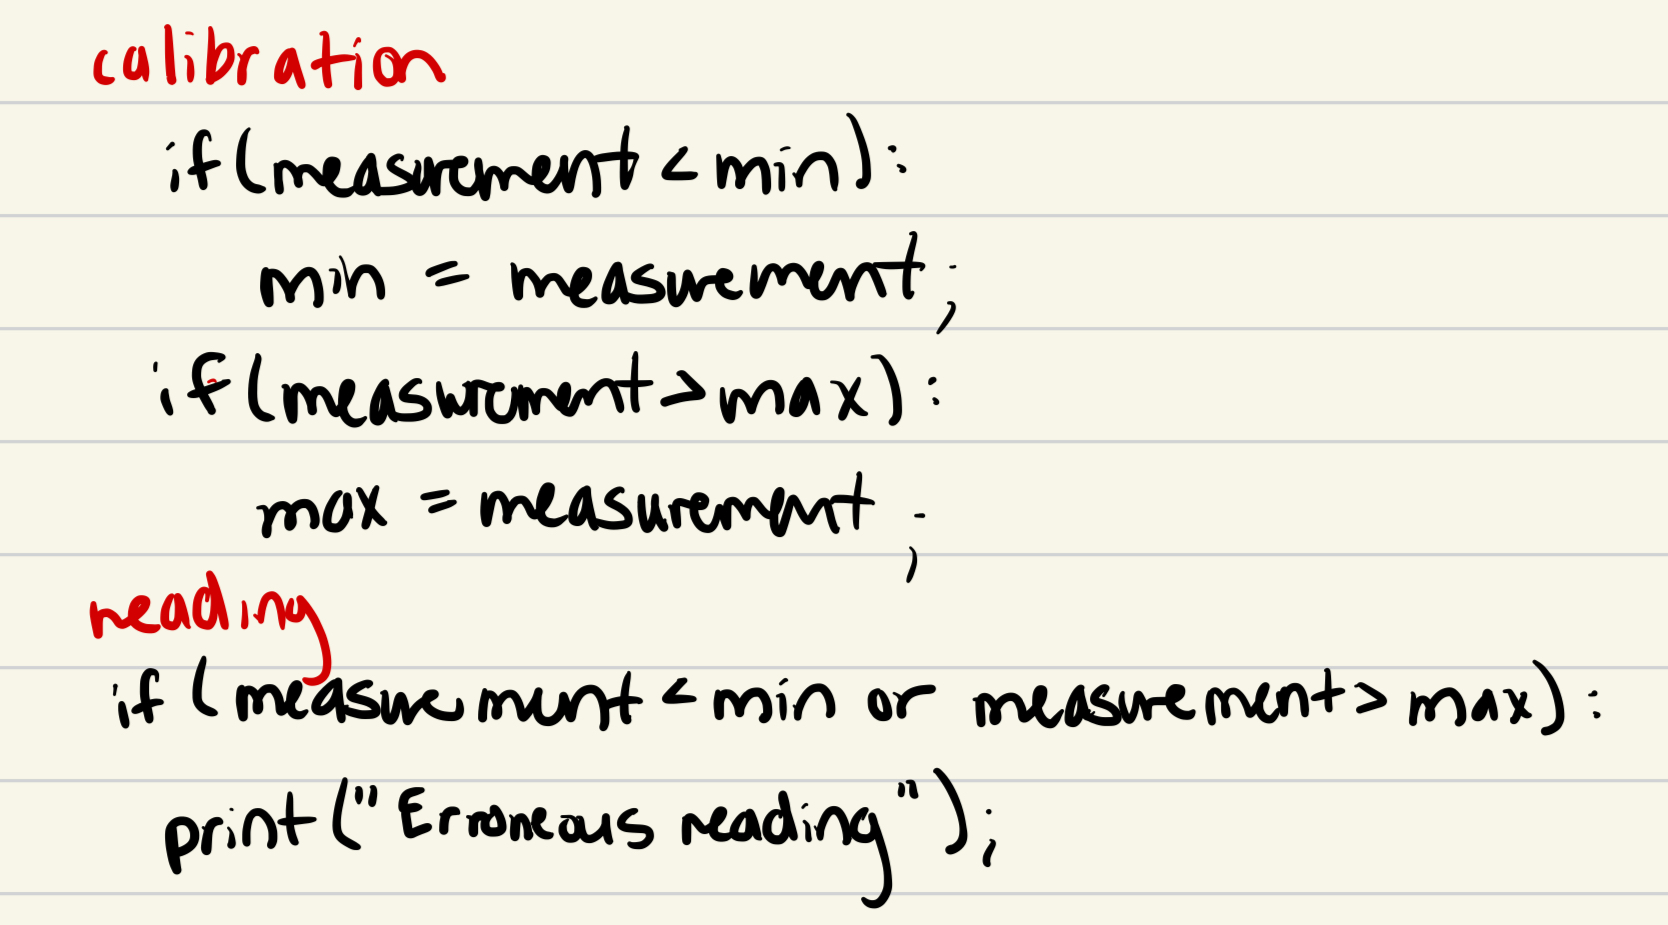 calibration
if(measurement < min):
min = measurement;
if(measurement > max):
max = measurement;
reading
if (measurement < min or measurement > max):
print("Erroneous reading");